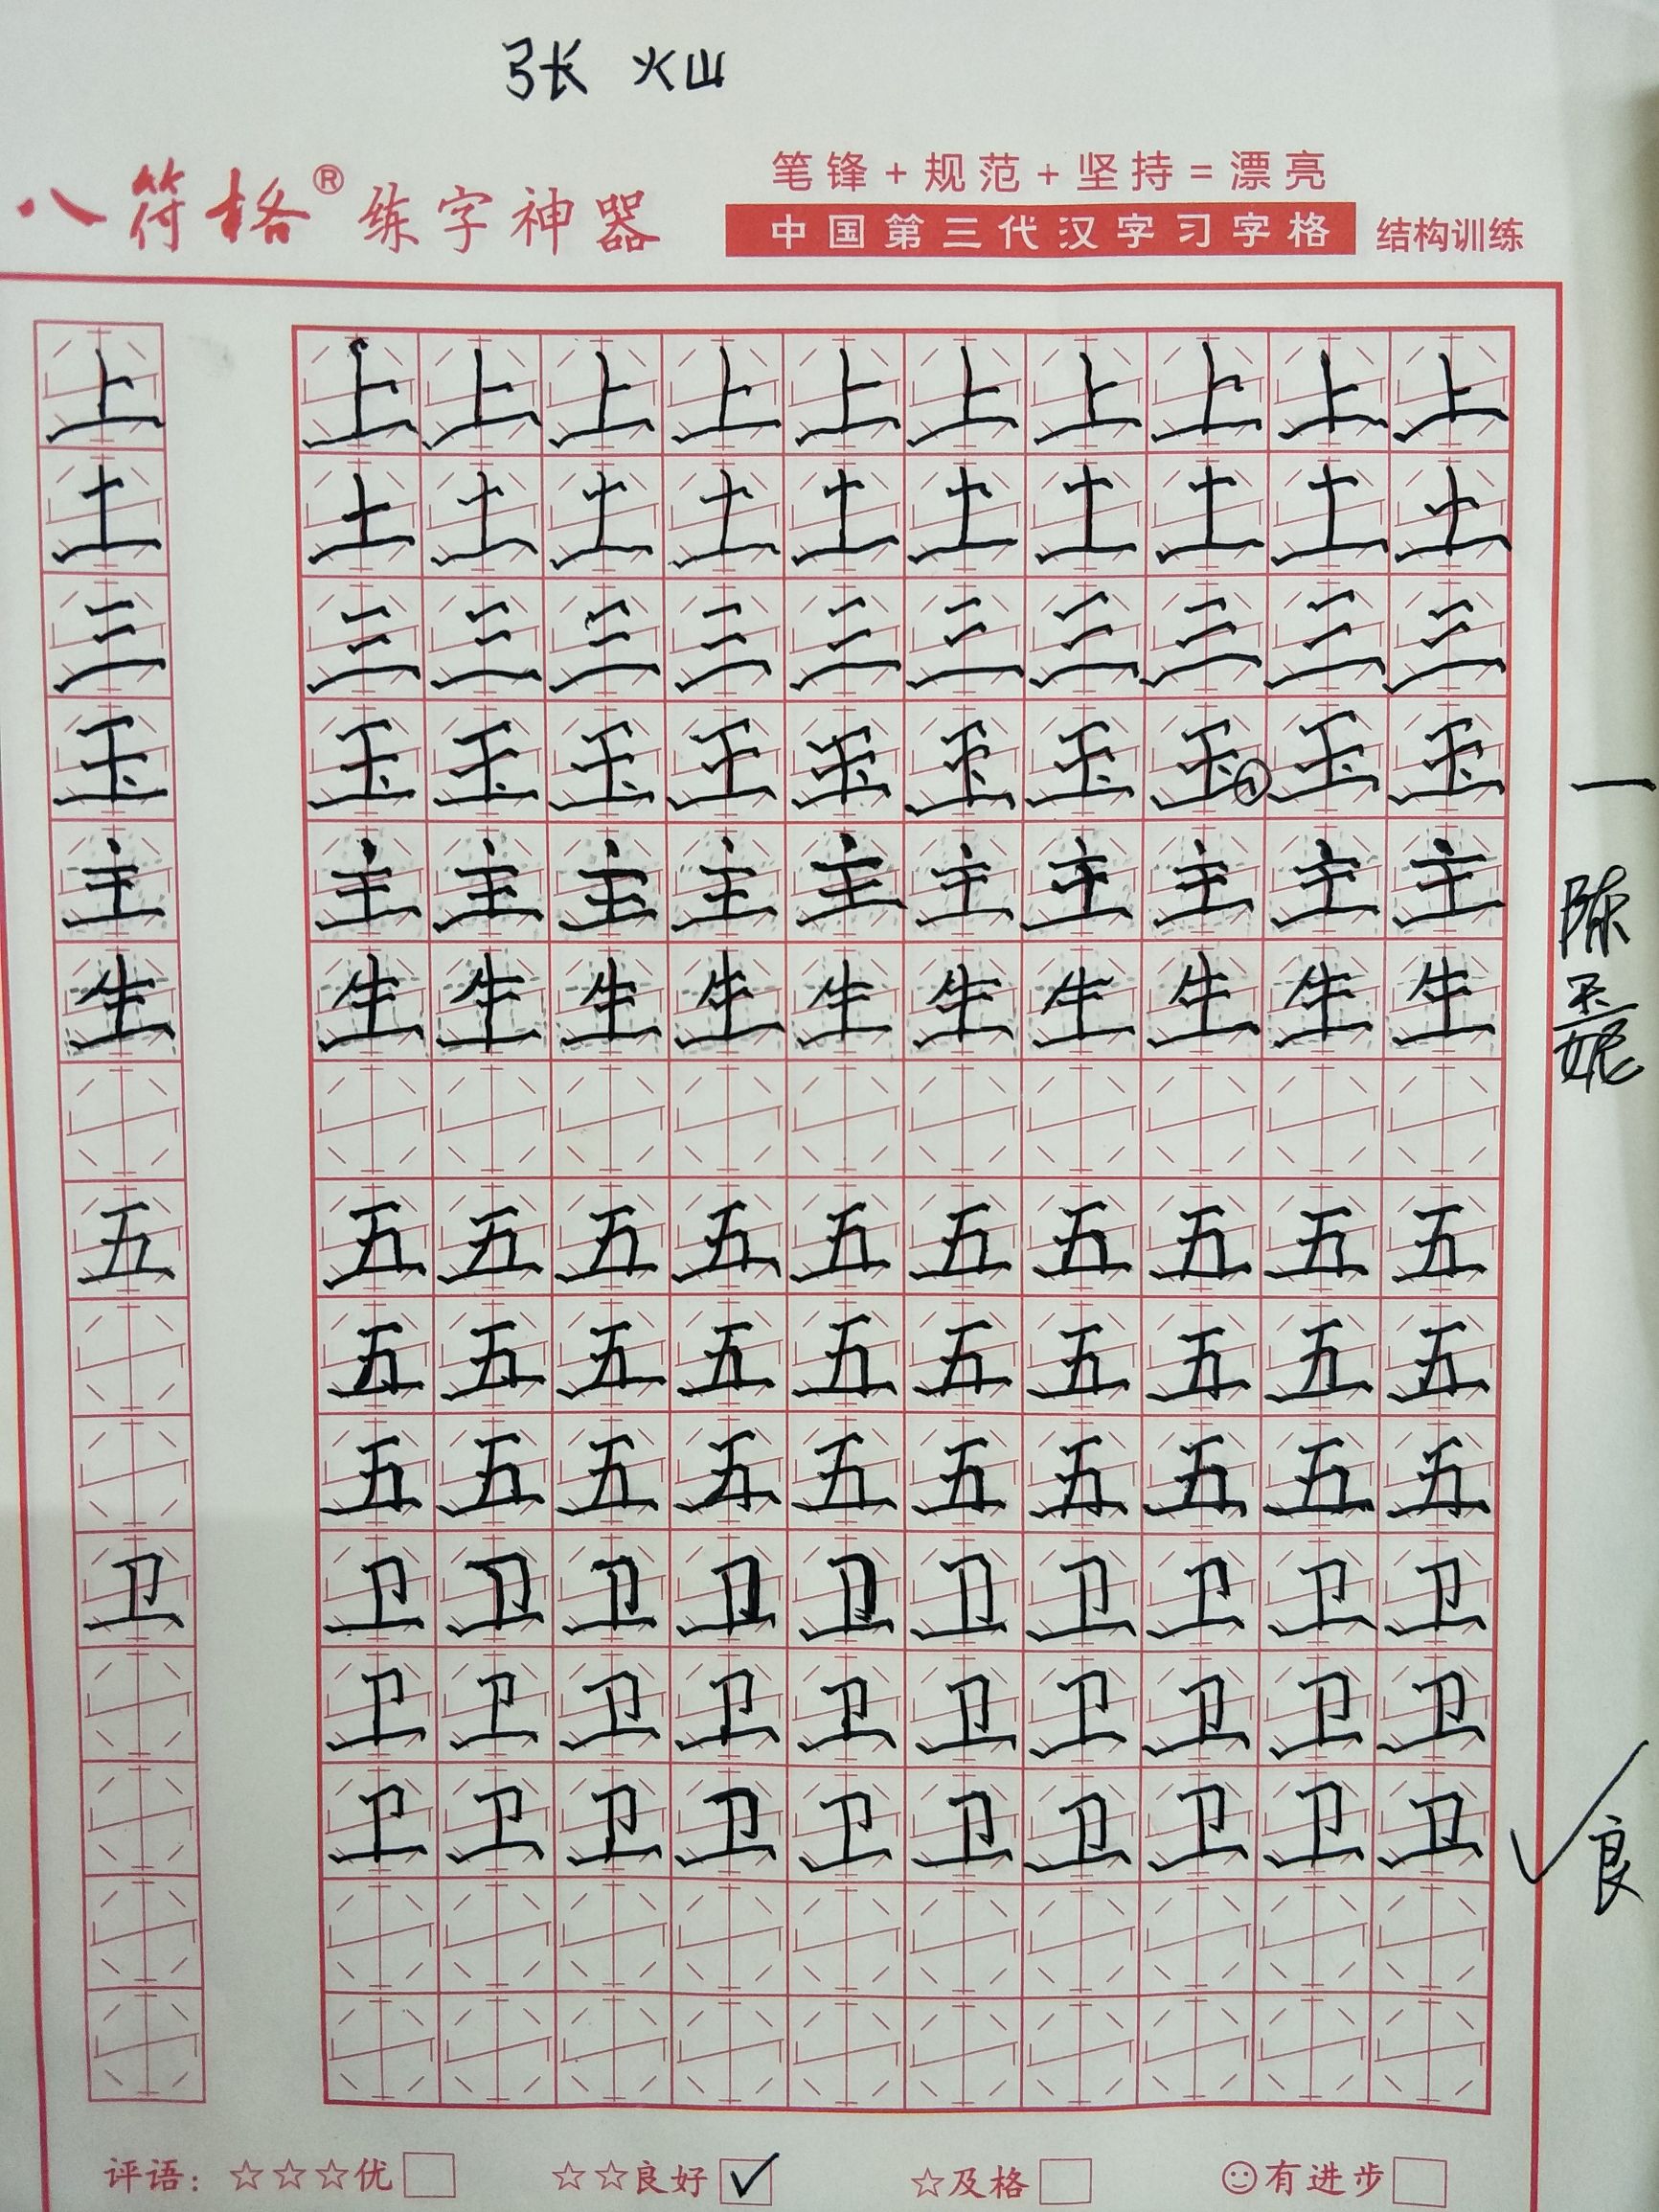 张 灿
八符格® 练字神器
笔锋+规范+坚持=漂亮
中国第三代汉字习字格 结构训练
上 上上上上上上上上上上
土 土土土土土土土土土土
三 三三三三三三三三三三
玉 玉玉玉玉玉玉玉玉玉玉
主 主主主主主主主主主主
生 生生生生生生生生生生
五 五五五五五五五五五五
五五五五五五五五五五
五五五五五五五五五五
卫 卫卫卫卫卫卫卫卫卫卫
卫卫卫卫卫卫卫卫卫卫
卫卫卫卫卫卫卫卫卫卫
一陈玉妮
良
评语：☆☆☆优 ☆☆良好 ✓ ☆及格 有进步